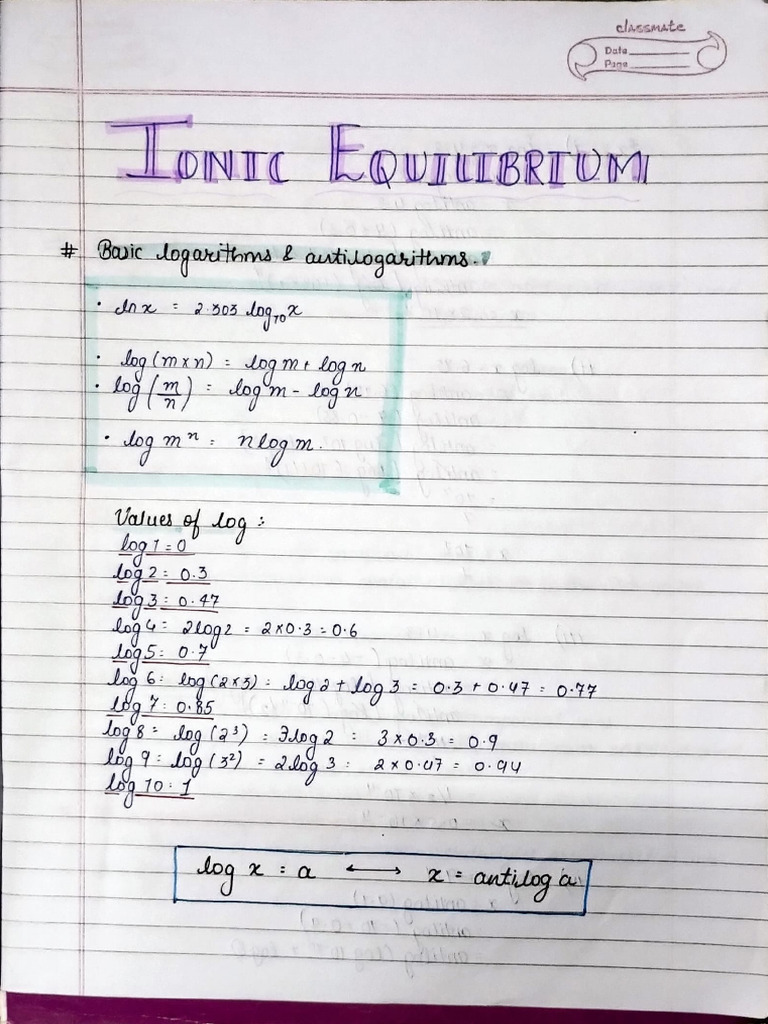 classmate
Date
Page
IONIC EQUILIBRIUM
# Basic logarithms & antilogarithms.
• ln x = 2.303 log₁₀x
• log(m×n) = log m + log n
• log(m/n) = log m - log n
• log mⁿ = n log m.
Values of log :
log 1 = 0
log 2 = 0.3
log 3 = 0.47
log 4 = 2log2 = 2×0.3 = 0.6
log 5 = 0.7
log 6 = log(2×3) = log 2 + log 3 = 0.3 + 0.47 = 0.77
log 7 = 0.85
log 8 = log(2³) = 3log 2 = 3×0.3 = 0.9
log 9 = log(3²) = 2log 3 = 2×0.47 = 0.94
log 10 = 1
log x = a ⟷ x = antilog a